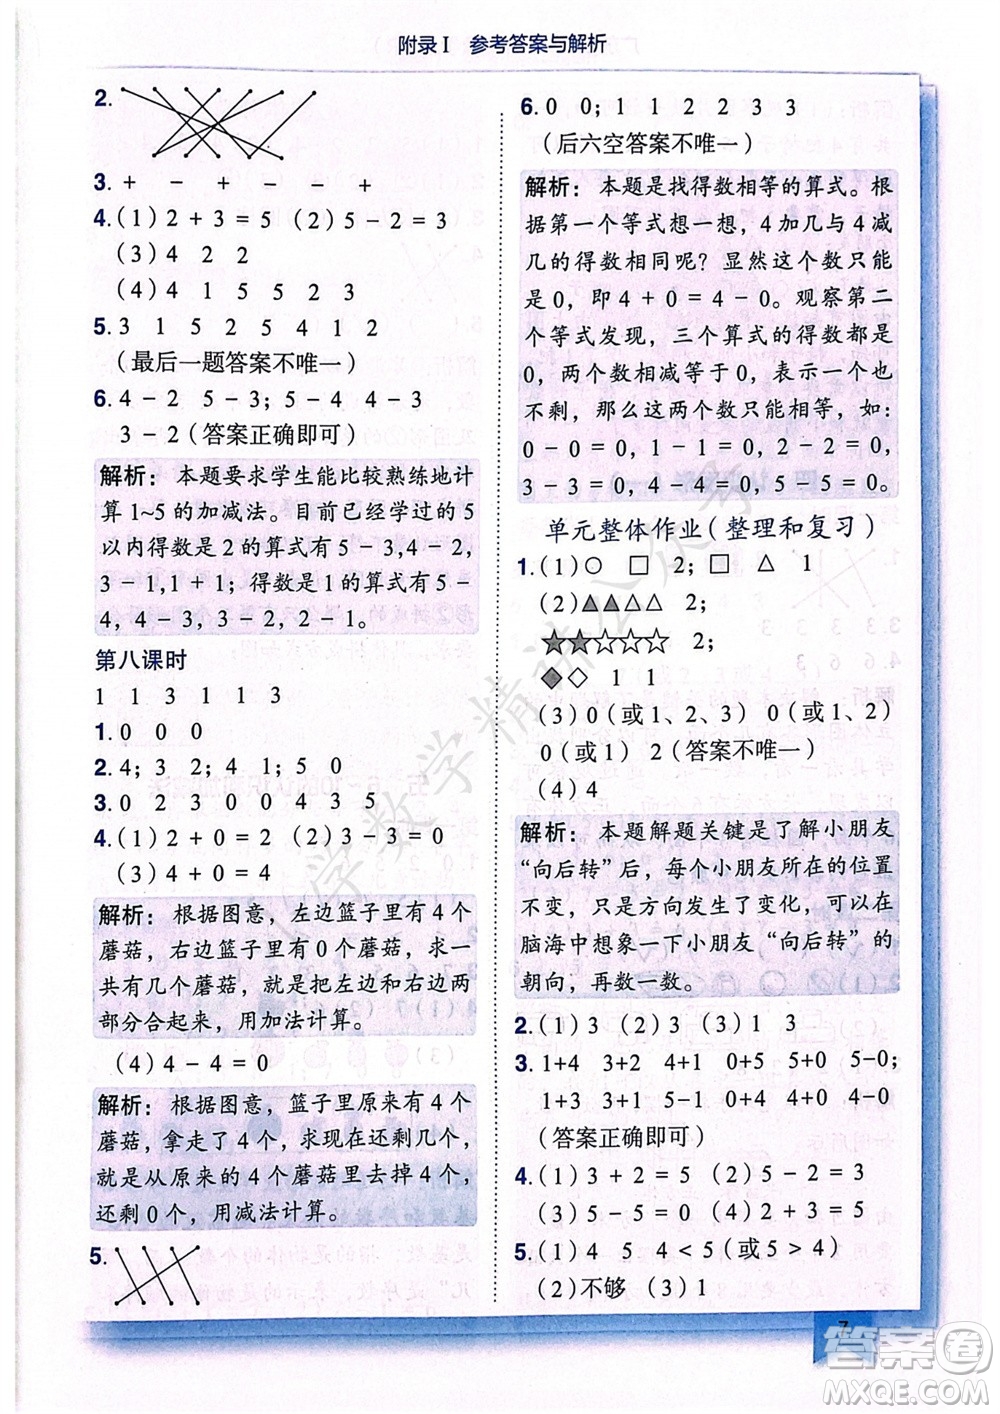 附录Ⅰ 参考答案与解析
2.
3. + - + - - - +
4.(1)2 + 3 = 5 (2)5 - 2 = 3
(3)4 2 2
(4)4 1 5 5 2 3
5. 3 1 5 2 5 4 1 2
(最后一题答案不唯一)
6. 4 - 2 5 - 3; 5 - 4 4 - 3
3 - 2(答案正确即可)
解析:本题要求学生能比较熟练地计
算 1~5 的加减法。目前已经学过的 5
以内得数是 2 的算式有 5 - 3,4 - 2,
3 - 1,1 + 1;得数是 1 的算式有 5 -
4, 4 - 3, 3 - 2, 2 - 1。
第八课时
1 1 3 1 1 3
1. 0 0 0
2. 4; 3; 2; 4 1; 5 0
3. 0 2 3 0 0 4 3 5
4.(1)2 + 0 = 2 (2)3 - 3 = 0
(3)4 + 0 = 4
解析:根据图意,左边篮子里有 4 个
蘑菇,右边篮子里有 0 个蘑菇,求一
共有几个蘑菇,就是把左边和右边两
部分合起来,用加法计算。
(4)4 - 4 = 0
解析:根据图意,篮子里原来有 4 个
蘑菇,拿走了 4 个,求现在还剩几个,
就是从原来的 4 个蘑菇里去掉 4 个,
还剩 0 个,用减法计算。
5.
6. 0 0; 1 1 2 2 3 3
(后六空答案不唯一)
解析:本题是找得数相等的算式。根
据第一个等式想一想,4 加几与 4 减
几的得数相同呢?显然这个数只能
是 0,即 4 + 0 = 4 - 0。观察第二
个等式发现,三个算式的得数都是
0,两个数相减等于 0,表示一个也
不剩,那么这两个数只能相等,如:
0 - 0 = 0, 1 - 1 = 0, 2 - 2 = 0,
3 - 3 = 0, 4 - 4 = 0, 5 - 5 = 0。
单元整体作业(整理和复习)
1.(1)○ □ 2; □ △ 1
(2)▲▲△△ 2;
★★☆☆☆ 2;
◆◇ 1 1
(3)0(或 1、2、3) 0(或 1、2)
0(或 1) 2(答案不唯一)
(4)4
解析:本题解题关键是了解小朋友
“向后转”后,每个小朋友所在的位置
不变,只是方向发生了变化,可以在
脑海中想象一下小朋友“向后转”的
朝向,再数一数。
2.(1)3 (2)3 (3)1 3
3. 1+4 3+2 4+1 0+5 5+0 5-0;
1+3 3+1 5-1 0+4 4+0 4-0
(答案正确即可)
4.(1)3 + 2 = 5 (2)5 - 2 = 3
(3)5 - 5 = 0 (4)2 + 3 = 5
5.(1)4 5 4 < 5(或 5 > 4)
(2)不够 (3)1
7
小学数学精讲公众号
答案圈
MXQE.COM